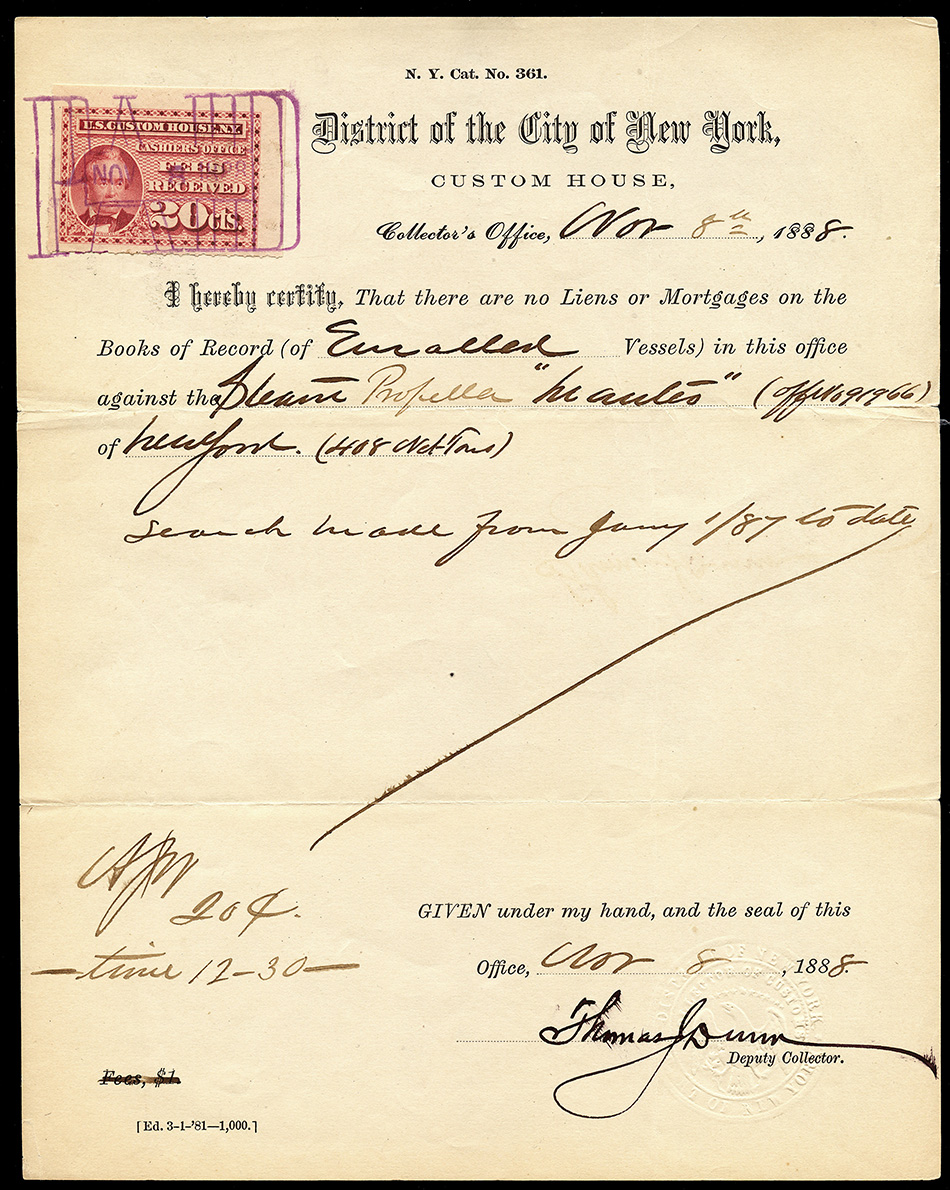 N. Y. Cat. No. 361.
U.S. CUSTOM HOUSE, N.Y.
CASHIER'S OFFICE
FEES
RECEIVED
20 CTS.
PAID
NOV
District of the City of New York,
CUSTOM HOUSE,
Collector's Office, Nov 8th, 1888.
I hereby certify, That there are no Liens or Mortgages on the
Books of Record (of Enrolled Vessels) in this office
against the Steam Propeller " " (Off No 91966)
of New York. (408 Net Tons)
Search made from Jany 1/87 to date
20¢.
— time 12-30 —
GIVEN under my hand, and the seal of this
Office, Nov 8, 1888.
Thomas J Dunn
Deputy Collector.
Fees, $1.
[Ed. 3-1-'81—1,000.]